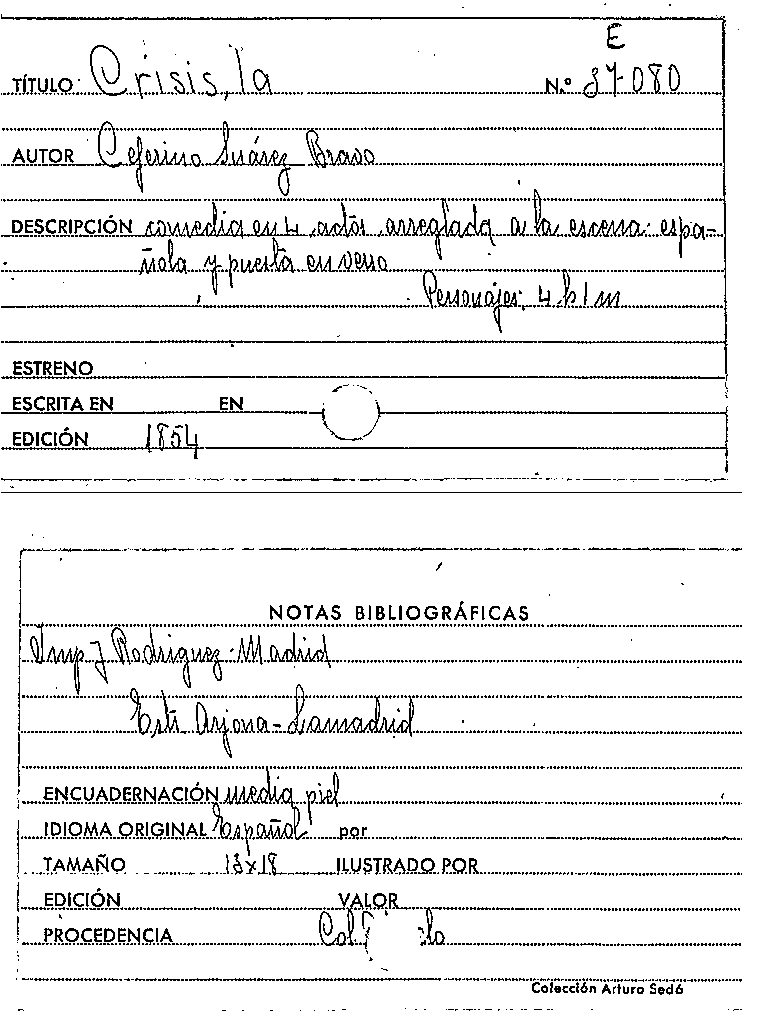 E
TÍTULO: Crisis, la N.º 37-080
AUTOR Ceferino Suárez Bravo
DESCRIPCIÓN comedia en 4 actos, arreglada a la escena espa-
ñola y puesta en verso
Personajes: 4 h 1 m
ESTRENO
ESCRITA EN EN
EDICIÓN 1854
NOTAS BIBLIOGRÁFICAS
Imp J Rodriguez-Madrid
Estr Arjona-Lamadrid
ENCUADERNACIÓN media piel
IDIOMA ORIGINAL Español por
TAMAÑO 13x18 ILUSTRADO POR
EDICIÓN VALOR
PROCEDENCIA Col
Colección Arturo Sedó